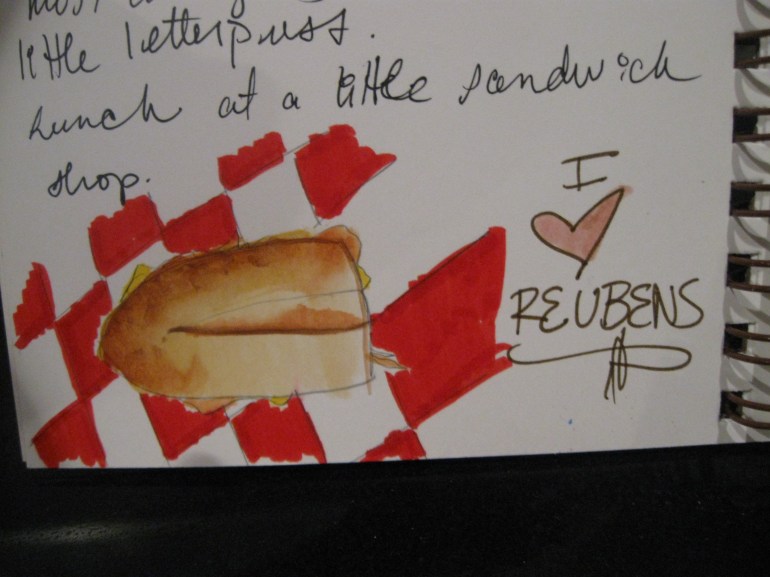 little letterpress.
Lunch at a little sandwich
shop.
I
REUBENS